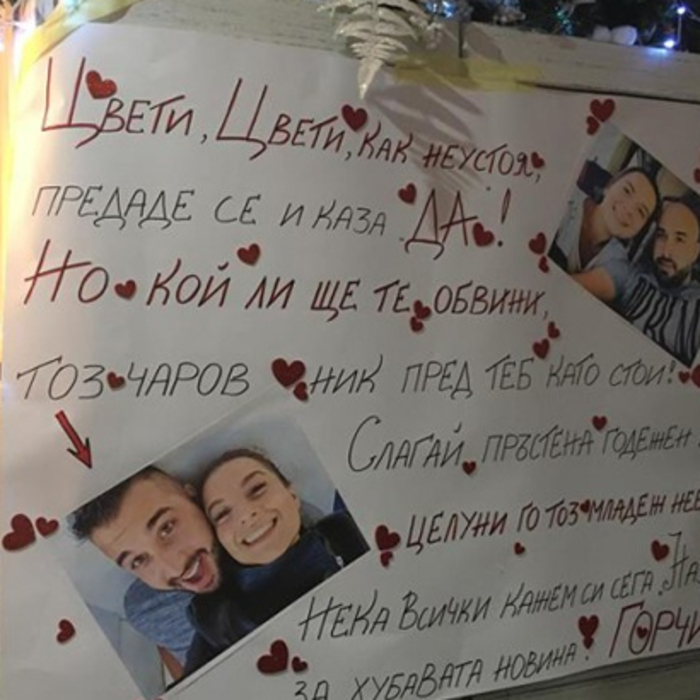 Цвети, Цвети, как неустоя,
предаде се и каза "ДА"!
Но кой ли ще те обвини,
тоз чаровник пред теб като стои!
Слагай пръстена годежен
целуни го тоз младеж
Нека всички кажем си сега
за хубавата новина!